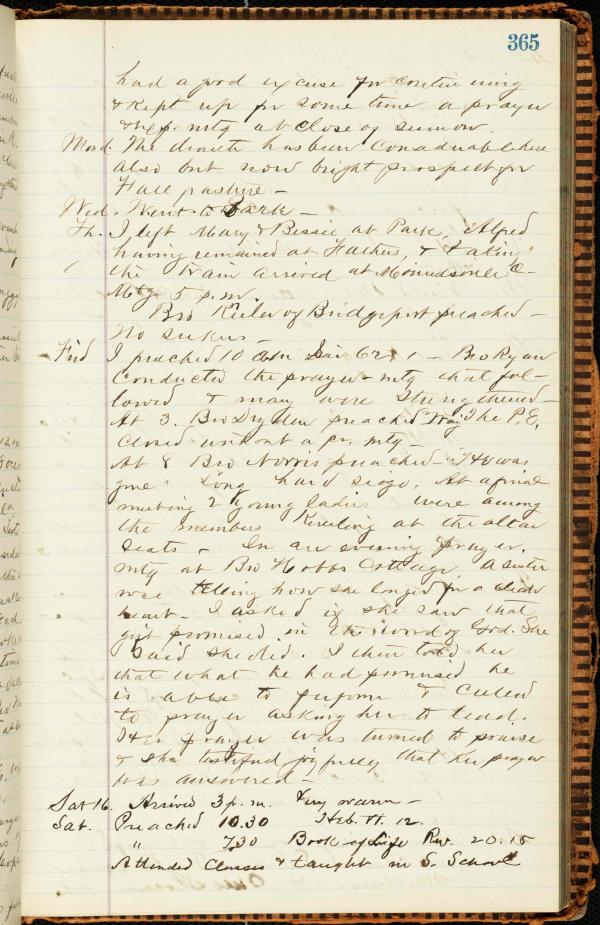 365
had a good excuse for continuing
& kept up for some time a prayer
& exp. mtg at close of sermon.
Mond. The drouth has been considerable here
also but now bright prospect for
Fall pasture –
Wed. Went to Park –
Th. I left Mary & Bessie at Park, Alfred
having remained at Fathers, & taking
the train arrived at
Mtg. 5 p.m.
Bro Kieler of Bridgeport preached –
No seekers –
Frid I preached 10 am 62: 1 – Bro Ryan
Conducted the prayer-mtg that fol-
lowed & many were strengthened –
At 3. Bro Dryden preached The P.E.
Closed without a pr. mtg –
At 8 Bro Norris preached –
Long hard siege. At a final
meeting 2 young ladies were among
the members kneeling at the altar
seats – In an evening prayer.
mtg at Bro Hobbs Cottage a sister
rose telling how she longed for a clean
heart – I asked if she saw that
gift promised in the word of God. She
said she did. I then told her
that what he had promised he
is able to perform & called
to prayer asking her to lead.
Her prayer was turned to praise
& she testified joyfully that her prayer
was answered –
Sat 16. Arrived 3 p.m. very warm –
Sat. Preached 10.30 Heb. 11. 12.
" 7.30 Book of Life Rev. 20. 15
Attended Classes & taught in S. School